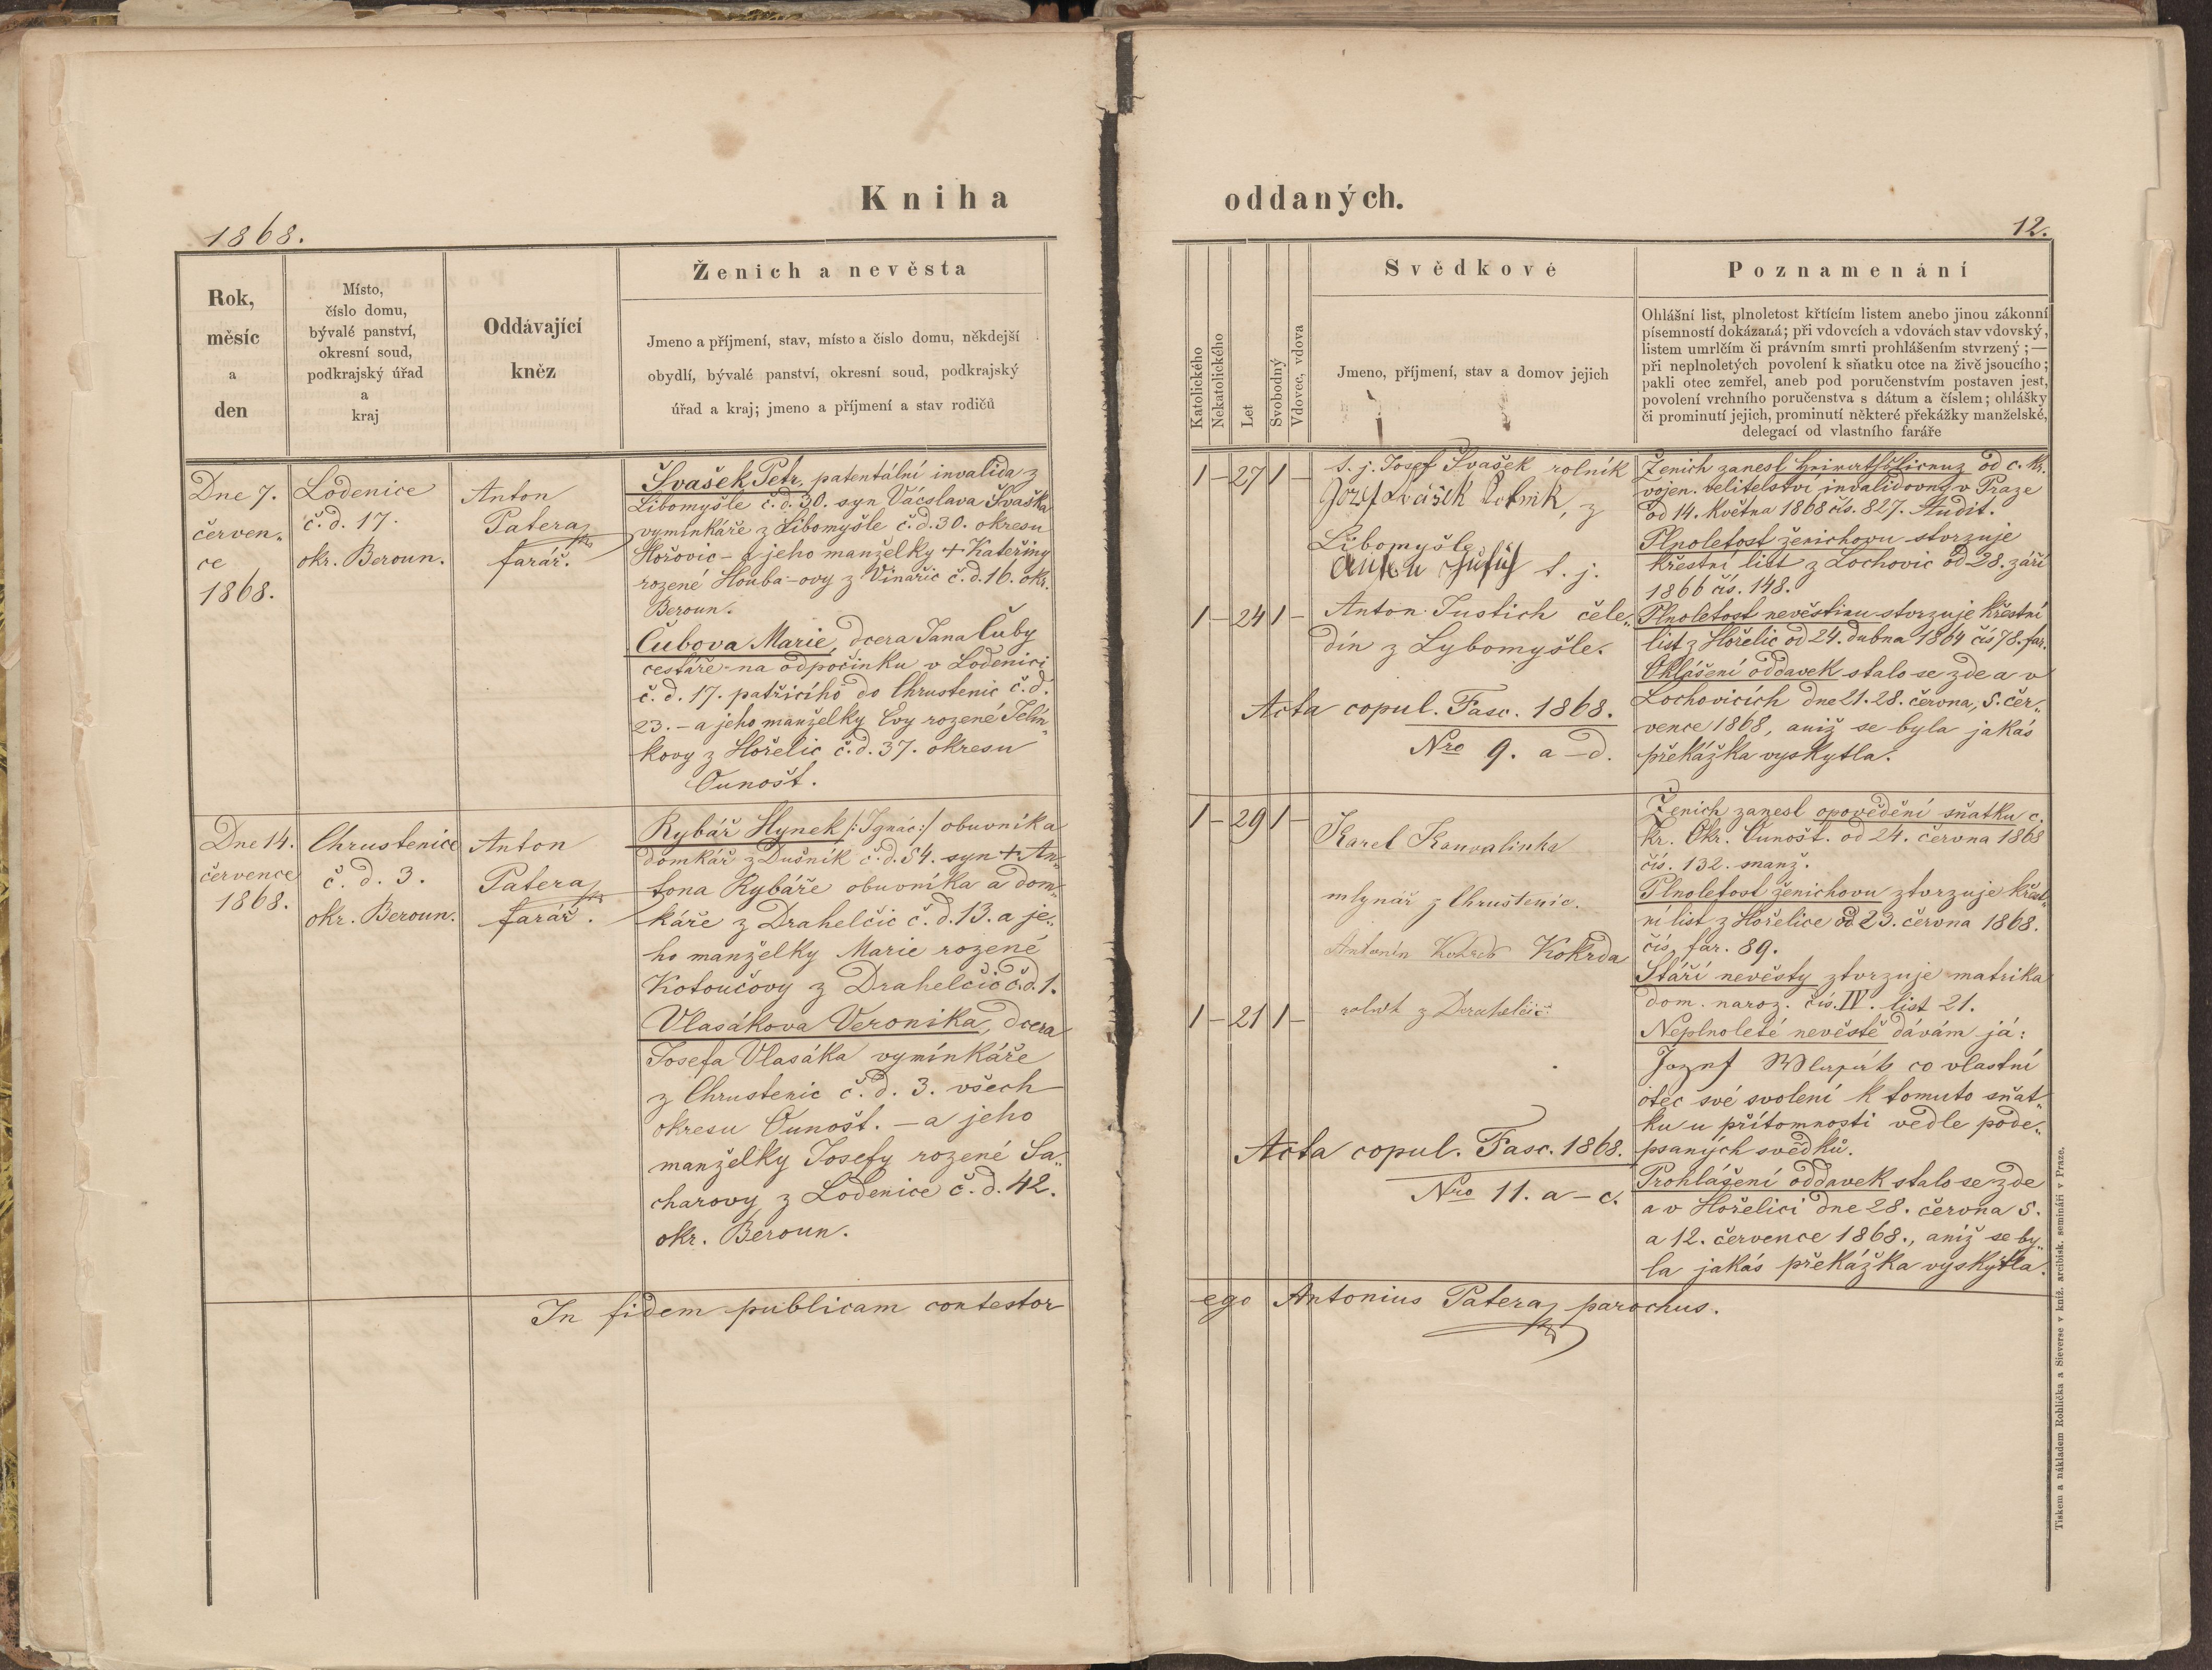 Kniha
1868.
Rok,
měsíc
a
den
Místo,
číslo domu,
bývalé panství,
okresní soud,
podkrajský úřad
a
kraj
Oddávající
kněz
Ženich a nevěsta
Jmeno a příjmení, stav, místo a čislo domu, někdejší
obydlí, bývalé panství, okresní soud, podkrajský
úřad a kraj; jmeno a příjmení a stav rodičů
Dne 7.
červen„
ce
1868.
Lodenice
č. d. 17.
okr. Beroun.
Anton
Patera
farář.
Švašek Petr, patentální invalida z
Libomyšle č. d. 30. syn Vacslava Švaška
vymínkáře z Libomyšle č. d. 30. okresu
Hořovic – a jeho manželky + Kateřiny
rozené Houba-ovy z Vinařic č. d. 16. okr.
Beroun.
Čubova Marie, dcera Jana Čuby
cestáře na odpočinku v Lodenici
č. d. 17. patřicího do Chrustenic č. d.
23. – a jeho manželky Evy rozené Jelín„
kovy z Hořelic č. d. 37. okresu
Ounošt.
Dne 14.
července
1868.
Chrustenice
č. d. 3.
okr. Beroun.
Anton
Patera
farář.
Rybář Hynek /: Ignác :/ obuvníka
domkář z Dušník č. d. 54. syn + An„
tona Rybáře obuvníka a dom„
káře z Drahelčic č. d. 13. a je„
ho manželky Marie rozené
Kotoučovy z Drahelčic č. d. 1.
Vlasákova Veronika, dcera
Josefa Vlasáka vymínkáře
z Chrustenic č. d. 3. všech
okresu Ounošt. – a jeho
manželky Josefy rozené Sa„
charovy z Lodenice č. d. 42.
okr. Beroun.
In fidem publicam contestor
oddaných.
12.
Katolického
Nekatolického
Let
Svobodný
Vdovec, vdova
Svědkové
Jmeno, příjmení, stav a domov jejich
Poznamenání
Ohlášní list, plnoletost křtícím listem anebo jinou zákonní
písemností dokázaná; při vdovcích a vdovách stav vdovský,
listem umrlčím či právním smrti prohlášením stvrzený; —
při neplnoletých povolení k sňatku otce na živě jsoucího;
pakli otec zemřel, aneb pod poručenstvím postaven jest,
povolení vrchního poručenstva s dátum a číslem; ohlášky
či prominutí jejich, prominutí některé překážky manželské,
delegací od vlastního faráře
1 – 27 1 –
t. j. Josef Švašek rolník
z
Libomyšle
t. j.
1 – 24 1 –
Anton Justich čele„
dín z Lybomyšle.
Acta copul. Fasc. 1868.
Nro 9. a – d.
Ženich zanesl od c. kr.
vojen. velitelství invalidovny v Praze
od 14. května 1868 čís. 827. Audit.
Plnoletost ženichovu stvrzuje
křestní list z Lochovic od 28. září
1866 čís. 148.
Plnoletost nevěstinu stvrzuje křestní
list z Hořelic od 24. dubna 1864 čís 78. far.
Ohlášení oddavek stalo se zde a v
Lochovicích dne 21. 28. června, 5. čer„
vence 1868, aniž se byla jakás
překážka vyskytla.
1 – 29 1 –
Karel Konvalinka
mlynář z Chrustenic.
Antonín Kokrda
rolník z Drahelčic
1 – 21 1 –
Acta copul. Fasc. 1868.
Nro 11. a – c.
Ženich zanesl opovědění sňatku c.
kr. Okr. Ounošt. od 24. června 1868
čís. 132. manž.
Plnoletost ženichovu ztvrzuje křest„
ní list z Hořelice od 23. června 1868.
čís. far. 89.
Stáří nevěsty ztvrzuje matrika
dom. naroz. čís. IV. list 21.
Neplnoleté nevěstě dávám já:
co vlastní
otec své svolení k tomuto sňat„
ku u přítomnosti vedle pode„
psaných svědků.
Prohlášení oddavek stalo se zde
a v Hořelici dne 28. června 5.
a 12. července 1868., aniž se by„
la jakás překážka vyskytla.
ego Antonius Patera parochus.
Tiskem a nákladem Rohlíčka a Sieverse v kníž. arcibisk. semináři v Praze.